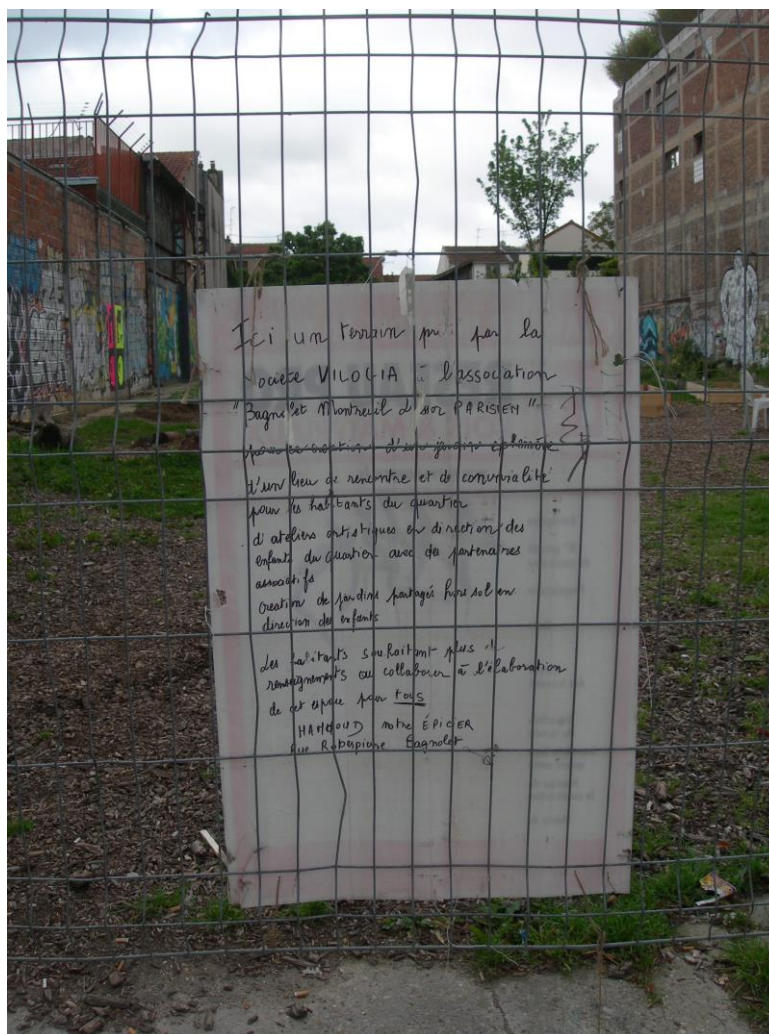 Ici un terrain par la
société VILOGIA à l'association
"Bagnolet Montreuil d'sor PARISIEN"
pour la création d'un jardin éphémère
d'un lieu de rencontre et de convivialité
pour les habitants du quartier
d'ateliers artistiques en direction des
enfants du quartier avec des partenaires
associatifs
création de jardins partagés hors sol en
direction des enfants
Les habitants souhaitant plus d'
renseignements ou collaborer à l'élaboration
de cet espace pour tous
HAMMOUD notre ÉPICIER
Rue Robespierre Bagnolet